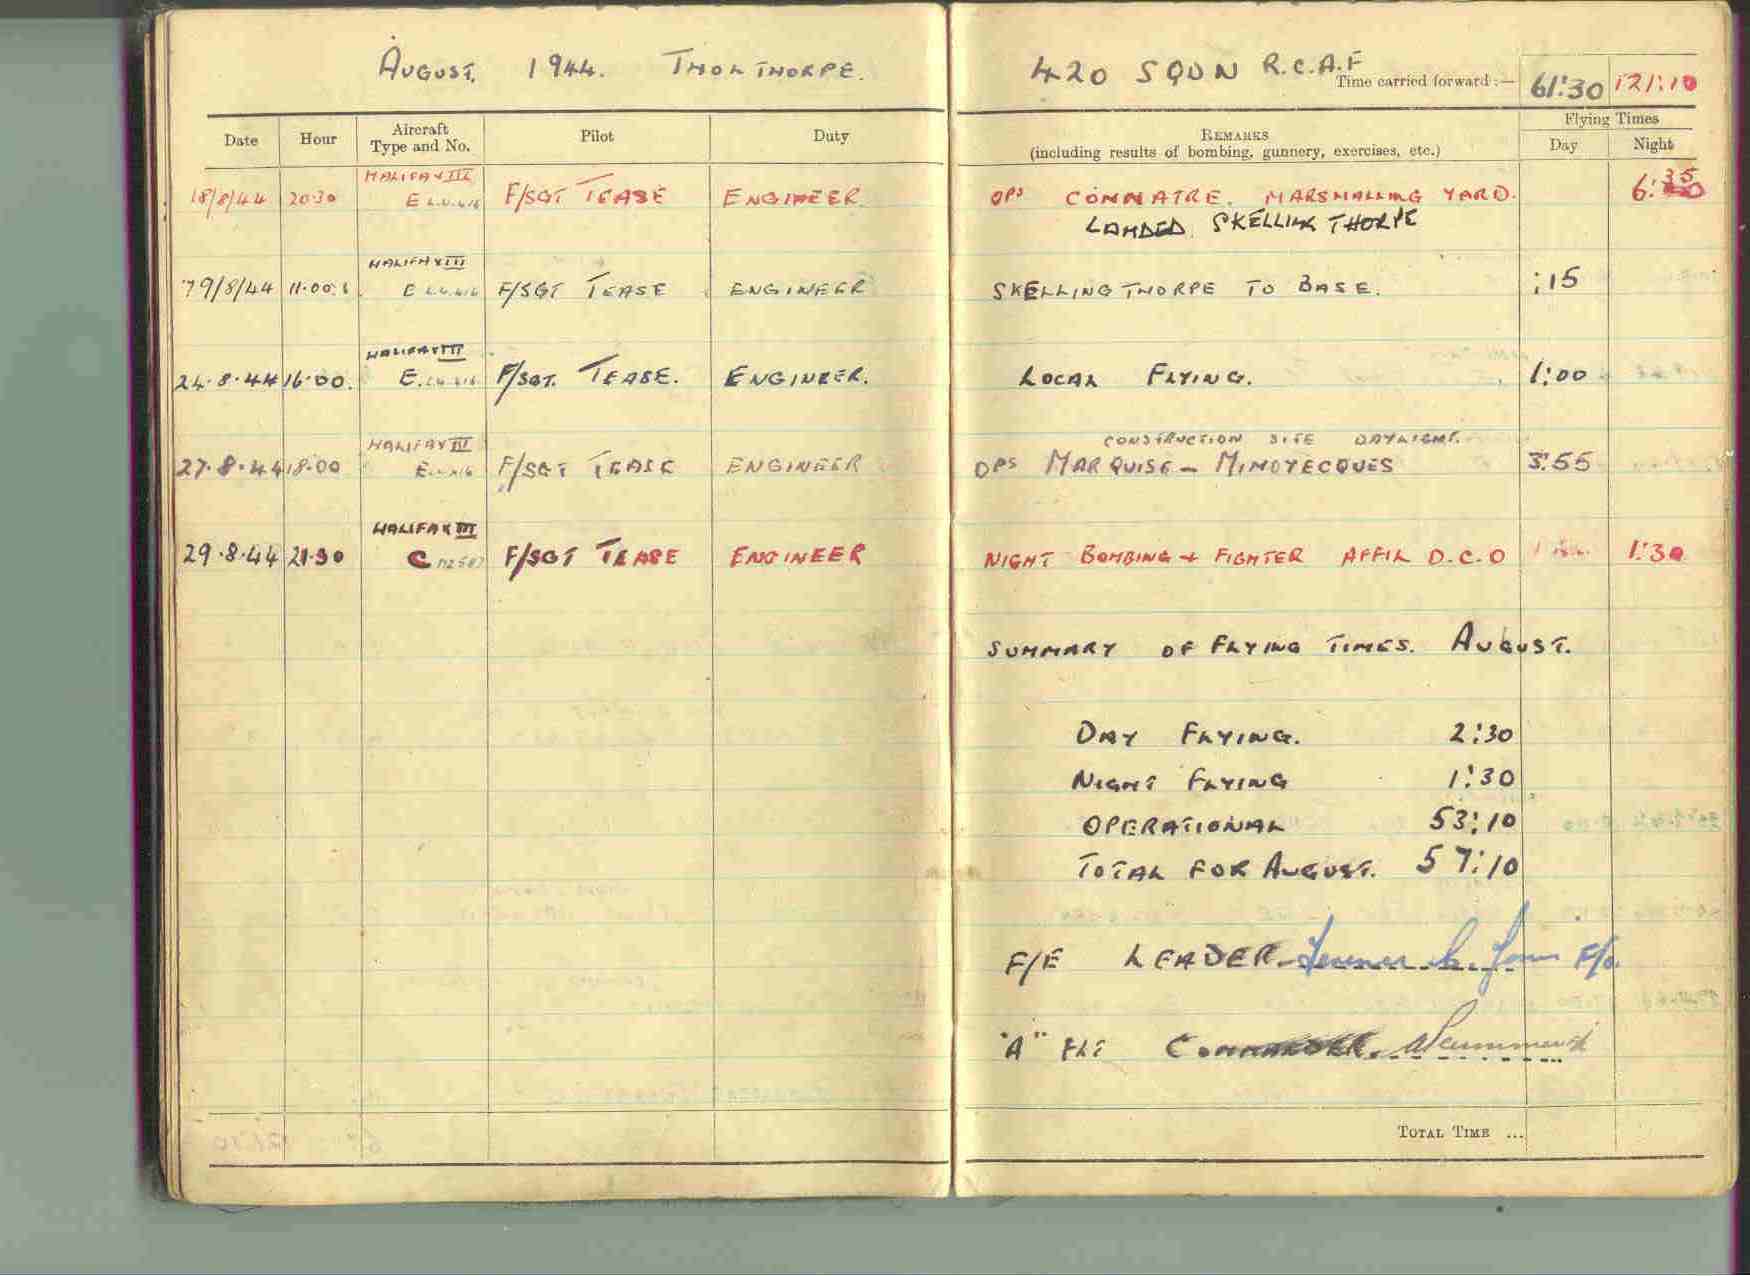 AUGUST. 1944. THOLTHORPE. 420 SQDN R.C.A.F
Time carried forward :— 61:30 121:10
Flying Times
Date Hour Aircraft Type and No. Pilot Duty REMARKS (including results of bombing, gunnery, exercises, etc.) Day Night
HALIFAX III
18/8/44 20·30 E F/SGT TEASE ENGINEER OPS CONNATRE. MARSHALLING YARD. 6:35
LANDED SKELLINGTHORPE
HALIFAX III
19/8/44 11·00 E F/SGT TEASE ENGINEER SKELLINGTHORPE TO BASE. :15
HALIFAX III
24·8·44 16·00. E. F/SGT. TEASE. ENGINEER. LOCAL FLYING. 1:00
HALIFAX III CONSTRUCTION SITE DAYLIGHT.
27·8·44 18·00 E F/SGT TEASE ENGINEER OPS MARQUISE – MIMOYECQUES 3:55
HALIFAX III
29·8·44 21·30 C F/SGT TEASE ENGINEER NIGHT BOMBING + FIGHTER AFFIL D.C.O 1:30
SUMMARY OF FLYING TIMES. AUGUST.
DAY FLYING. 2:30
NIGHT FLYING 1:30
OPERATIONAL 53:10
TOTAL FOR AUGUST. 57:10
F/E LEADER F/O.
"A" FLT COMMANDER.
TOTAL TIME ...